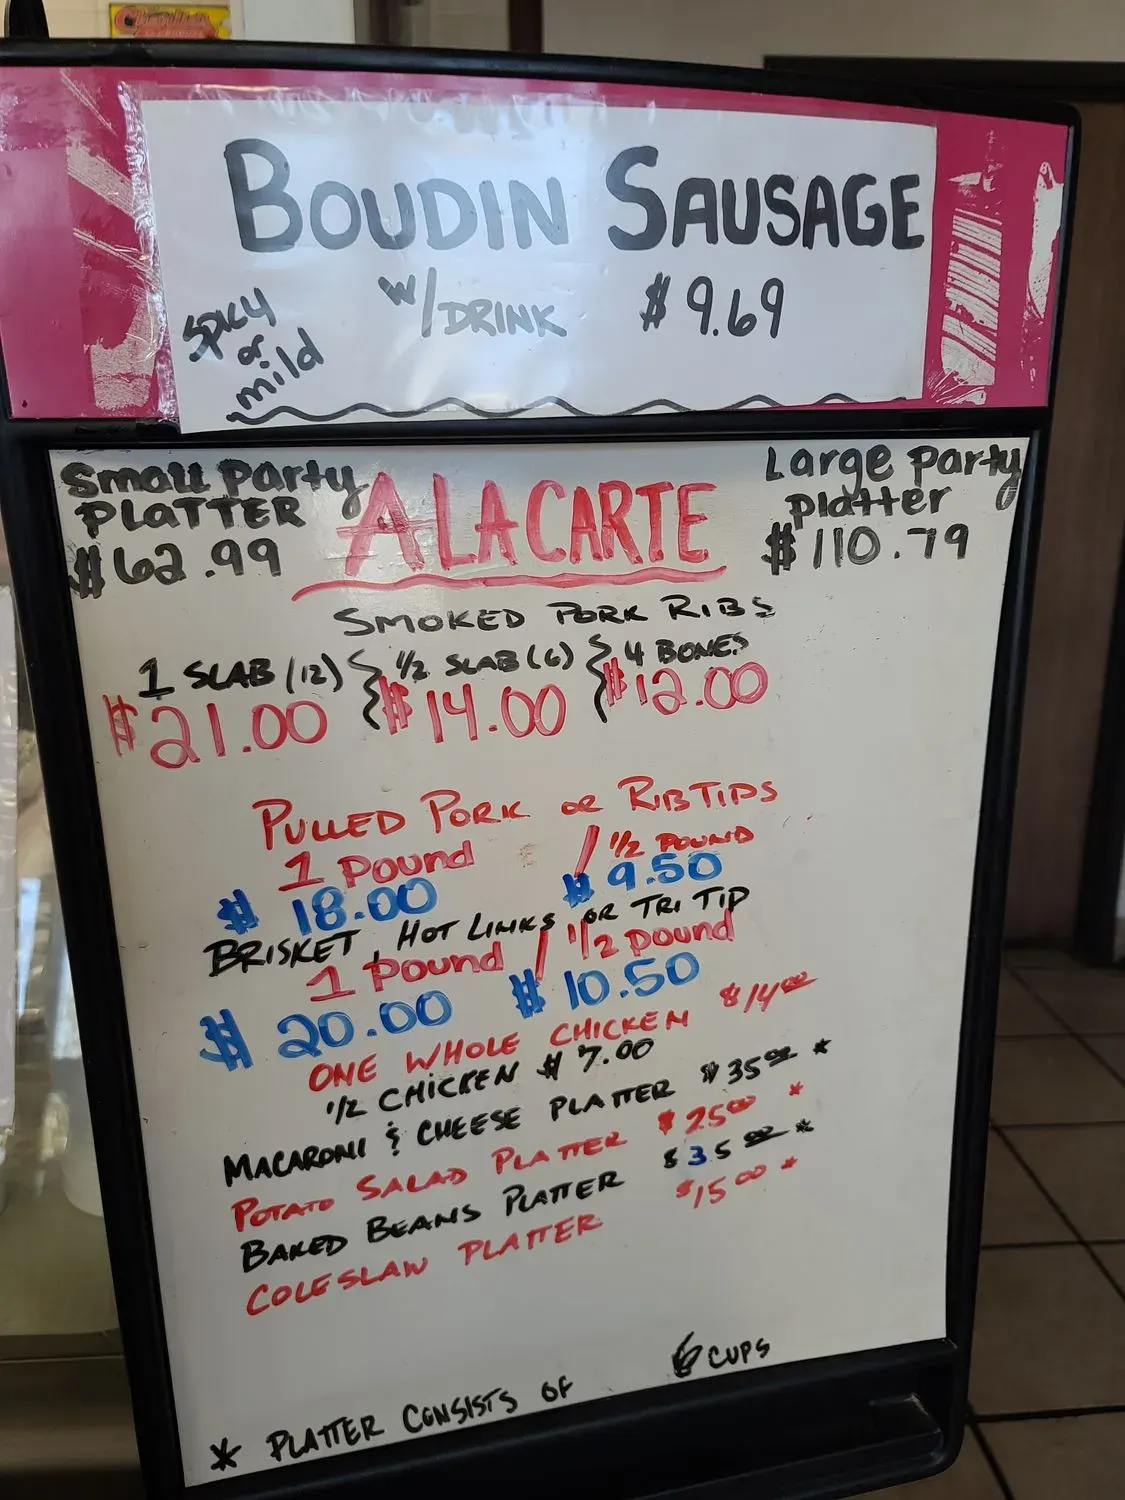 BOUDIN SAUSAGE
W/DRINK $9.69
SPICY
or
mild
Small Party
PLATTER
$62.99
A LA CARTE
Large Party
Platter
$110.79
SMOKED PORK RIBS
1 SLAB (12) } 1/2 SLAB (6) } 4 BONES
$21.00 $14.00 $12.00
PULLED PORK or RIBTIPS
1 Pound / 1/2 POUND
$18.00 $9.50
BRISKET, HOT LINKS OR TRI TIP
1 Pound / 1/2 Pound
$20.00 $10.50
ONE WHOLE CHICKEN $14.00
1/2 CHICKEN $7.00
MACARONI & CHEESE PLATTER $35.00 *
POTATO SALAD PLATTER $25.00 *
BAKED BEANS PLATTER $35.00 *
COLESLAW PLATTER $15.00 *
* PLATTER CONSISTS OF 6 CUPS